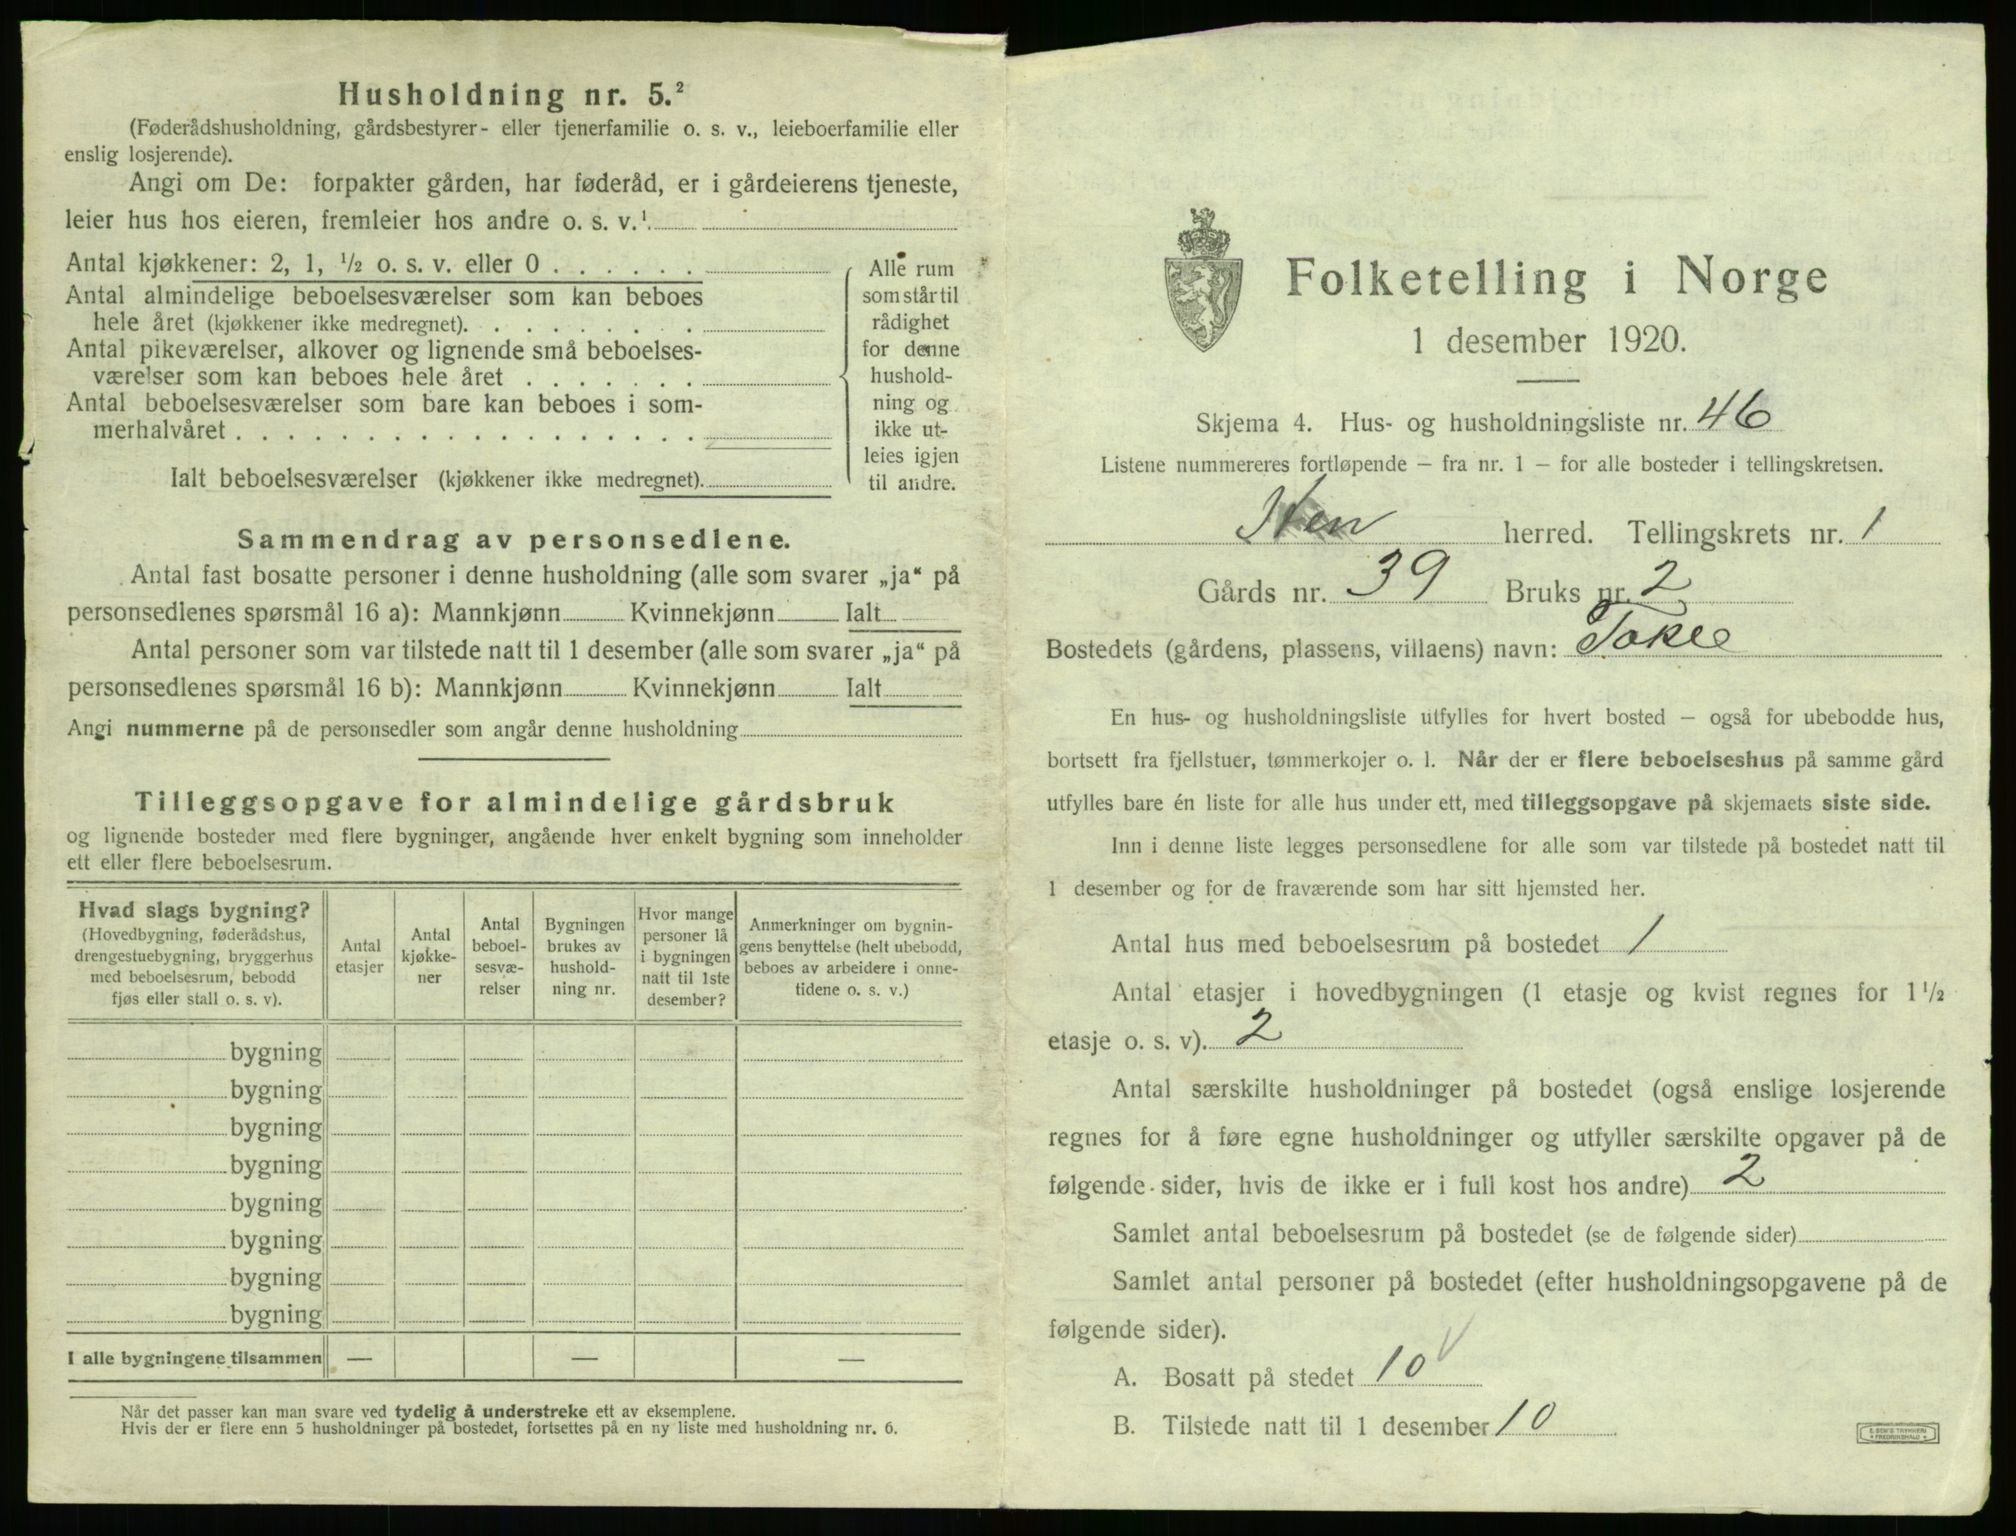 Husholdning nr. 5.²
(Føderådshusholdning, gårdsbestyrer- eller tjenerfamilie o. s. v., leieboerfamilie eller
enslig losjerende).
Angi om De: forpakter gården, har føderåd, er i gårdeierens tjeneste,
leier hus hos eieren, fremleier hos andre o. s. v.¹
Antal kjøkkener: 2, 1, ½ o. s. v. eller 0 . . . . . .
Antal almindelige beboelsesværelser som kan beboes
hele året (kjøkkener ikke medregnet). . . . . . . . .
Antal pikeværelser, alkover og lignende små beboelses-
værelser som kan beboes hele året . . . . . . .
Antal beboelsesværelser som bare kan beboes i som-
merhalvåret . . . . . . . . . . . . . . . . . .
Ialt beboelsesværelser (kjøkkener ikke medregnet).
Alle rum
som står til
rådighet
for denne
hushold-
ning og
ikke ut-
leies igjen
til andre.
Sammendrag av personsedlene.
Antal fast bosatte personer i denne husholdning (alle som svarer „ja“ på
personsedlenes spørsmål 16 a): Mannkjønn Kvinnekjønn Ialt
Antal personer som var tilstede natt til 1 desember (alle som svarer „ja“ på
personsedlenes spørsmål 16 b): Mannkjønn Kvinnekjønn Ialt
Angi nummerne på de personsedler som angår denne husholdning
Tilleggsopgave for almindelige gårdsbruk
og lignende bosteder med flere bygninger, angående hver enkelt bygning som inneholder
ett eller flere beboelsesrum.
Hvad slags bygning?
(Hovedbygning, føderådshus,
drengestuebygning, bryggerhus
med beboelsesrum, bebodd
fjøs eller stall o. s. v).
Antal
etasjer
Antal
kjøkke-
ner
Antal
beboel-
sesvæ-
relser
Bygningen
brukes av
hushold-
ning nr.
Hvor mange
personer lå
i bygningen
natt til 1ste
desember?
Anmerkninger om bygnin-
gens benyttelse (helt ubebodd,
beboes av arbeidere i onne-
tidene o. s. v.)
bygning
bygning
bygning
bygning
bygning
bygning
bygning
bygning
I alle bygningene tilsammen — — —
Når det passer kan man svare ved tydelig å understreke ett av eksemplene.
Hvis der er flere enn 5 husholdninger på bostedet, fortsettes på en ny liste med husholdning nr. 6.
Folketelling i Norge
1 desember 1920.
Skjema 4. Hus- og husholdningsliste nr. 46
Listene nummereres fortløpende – fra nr. 1 – for alle bosteder i tellingskretsen.
Hen herred. Tellingskrets nr. 1
Gårds nr. 39 Bruks nr. 2
Bostedets (gårdens, plassens, villaens) navn: Tokle
En hus- og husholdningsliste utfylles for hvert bosted – også for ubebodde hus,
bortsett fra fjellstuer, tømmerkojer o. l. Når der er flere beboelseshus på samme gård
utfylles bare én liste for alle hus under ett, med tilleggsopgave på skjemaets siste side.
Inn i denne liste legges personsedlene for alle som var tilstede på bostedet natt til
1 desember og for de fraværende som har sitt hjemsted her.
Antal hus med beboelsesrum på bostedet 1
Antal etasjer i hovedbygningen (1 etasje og kvist regnes for 1½
etasje o. s. v). 2
Antal særskilte husholdninger på bostedet (også enslige losjerende
regnes for å føre egne husholdninger og utfyller særskilte opgaver på de
følgende sider, hvis de ikke er i full kost hos andre) 2
Samlet antal beboelsesrum på bostedet (se de følgende sider)
Samlet antal personer på bostedet (efter husholdningsopgavene på de
følgende sider).
A. Bosatt på stedet 10
B. Tilstede natt til 1 desember 10
E. SEM'S TRYKKERI
FREDRIKSHALD